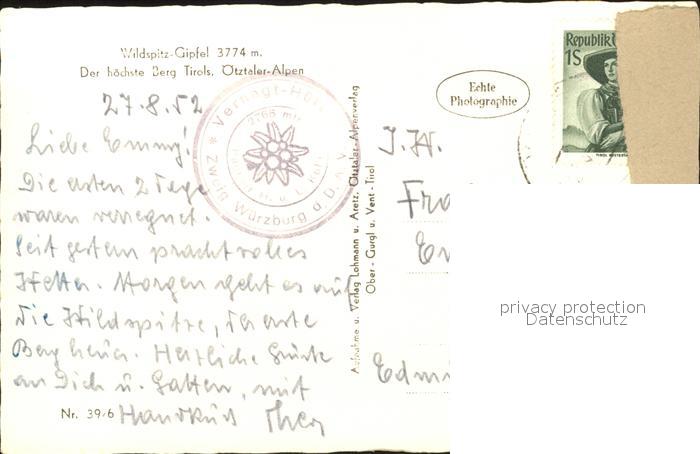 Wildspitz-Gipfel 3774 m.
Der höchste Berg Tirols, Ötztaler-Alpen
27.8.52
Liebe Emmy!
Die ersten 2 Tage
waren verregnet.
Seit gestern prachtvolles
Wetter. Morgen geht es auf
die Wildspitze, der erste
Berg heuer. Herzliche Grüsse
an Dich u. Gatten, mit
Handkuss
Nr. 39/6
Vernagt-Hütte
2766 m
Zweig Würzburg d. D.A.V.
Aufnahme u. Verlag Lohmann u. Aretz, Ötztaler-Alpenverlag
Ober-Gurgl u. Vent-Tirol
Echte
Photographie
Republik
1S
I.H.
Fra
Edm
privacy protection
Datenschutz